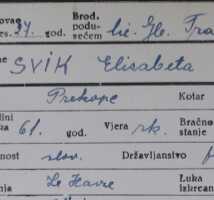 ovao Brod.
es. 34. god. podu-
sećem lić. Gle. Tra
me SVIK Elisabeta
Prekope Kotar
dini
ka 61. god. Vjera rk. Bračno
stanje
nost slov. Državljanstvo
nja Le Havre Luka
iskrcan